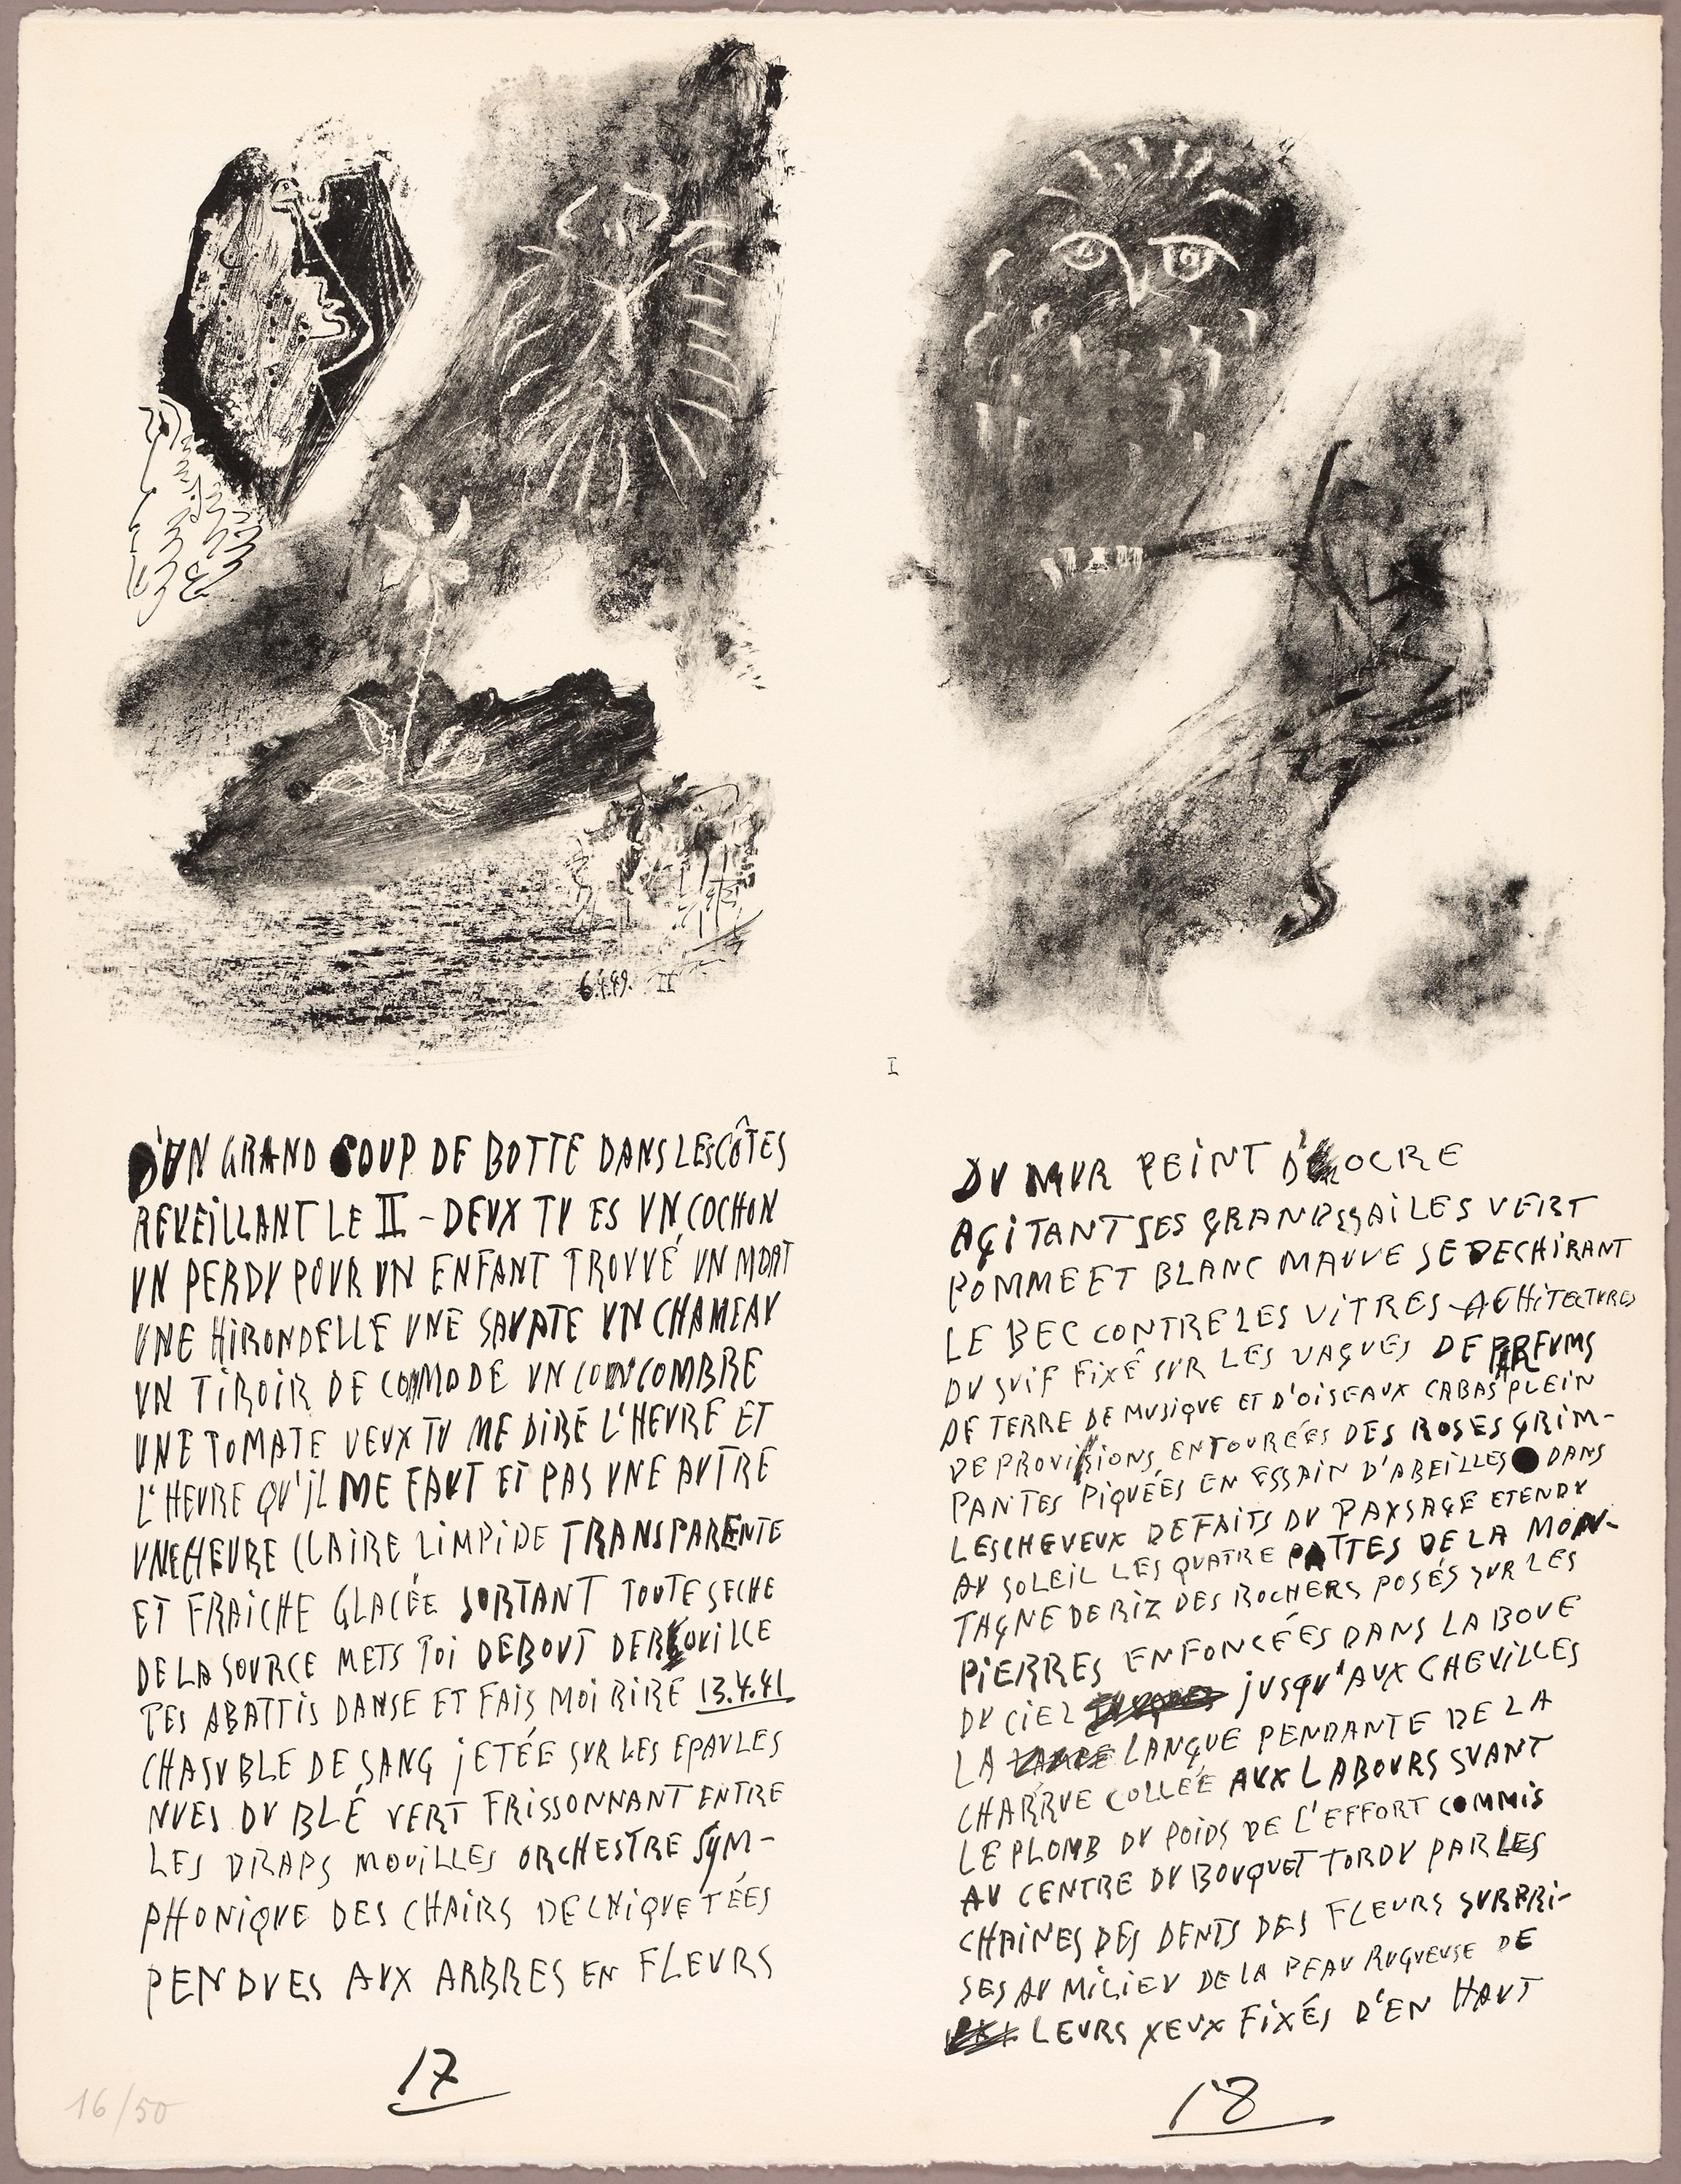 6.4.49. II
I
D'UN GRAND COUP DE BOTTE DANS LES CÔTES
REVEILLANT LE II - DEUX TU ES UN COCHON
UN PERDU POUR UN ENFANT TROUVÉ UN MORT
UNE HIRONDELLE UNE SAVATE UN CHAMEAU
UN TIROIR DE COMMODE UN CONCOMBRE
UNE TOMATE VEUX TU ME DIRE L'HEURE ET
L'HEURE QU'IL ME FAUT ET PAS UNE AUTRE
UNE HEURE CLAIRE LIMPIDE TRANSPARENTE
ET FRAICHE GLACÉE SORTANT TOUTE SECHE
DE LA SOURCE METS TOI DEBOUT DEROUILLE
TES ABATTIS DANSE ET FAIS MOI RIRE 13.4.41
CHASUBLE DE SANG JETÉE SUR LES EPAULES
NUES DU BLÉ VERT FRISSONNANT ENTRE
LES DRAPS MOUILLES ORCHESTRE SYM-
PHONIQUE DES CHAIRS DECHIQUETÉES
PENDUES AUX ARBRES EN FLEURS
17
16/50
DU MUR PEINT D'OCRE
AGITANT SES GRANDES AILES VERT
POMME ET BLANC MAUVE SE DECHIRANT
LE BEC CONTRE LES VITRES ACHITECTURES
DU SUIF FIXÉ SUR LES VAGUES DE PARFUMS
DE TERRE DE MUSIQUE ET D'OISEAUX CABAS PLEIN
DE PROVISIONS ENTOURÉES DES ROSES GRIM-
PANTES PIQUÉES EN ESSAIN D'ABEILLES DANS
LES CHEVEUX DEFAITS DU PAYSAGE ETENDU
AU SOLEIL LES QUATRE PATTES DE LA MON-
TAGNE DE RIZ DES ROCHERS POSÉS SUR LES
PIERRES ENFONCÉES DANS LA BOUE
DU CIEL JUSQU'AUX CHEVILLES
LA LANGUE PENDANTE DE LA
CHARRUE COLLÉE AUX LABOURS SUANT
LE PLOMB DU POIDS DE L'EFFORT COMMIS
AU CENTRE DU BOUQUET TORDU PAR LES
CHAINES DES DENTS DES FLEURS SURPRI-
SES AU MILIEU DE LA PEAU RUGUEUSE DE
LEURS YEUX FIXÉS D'EN HAUT
18